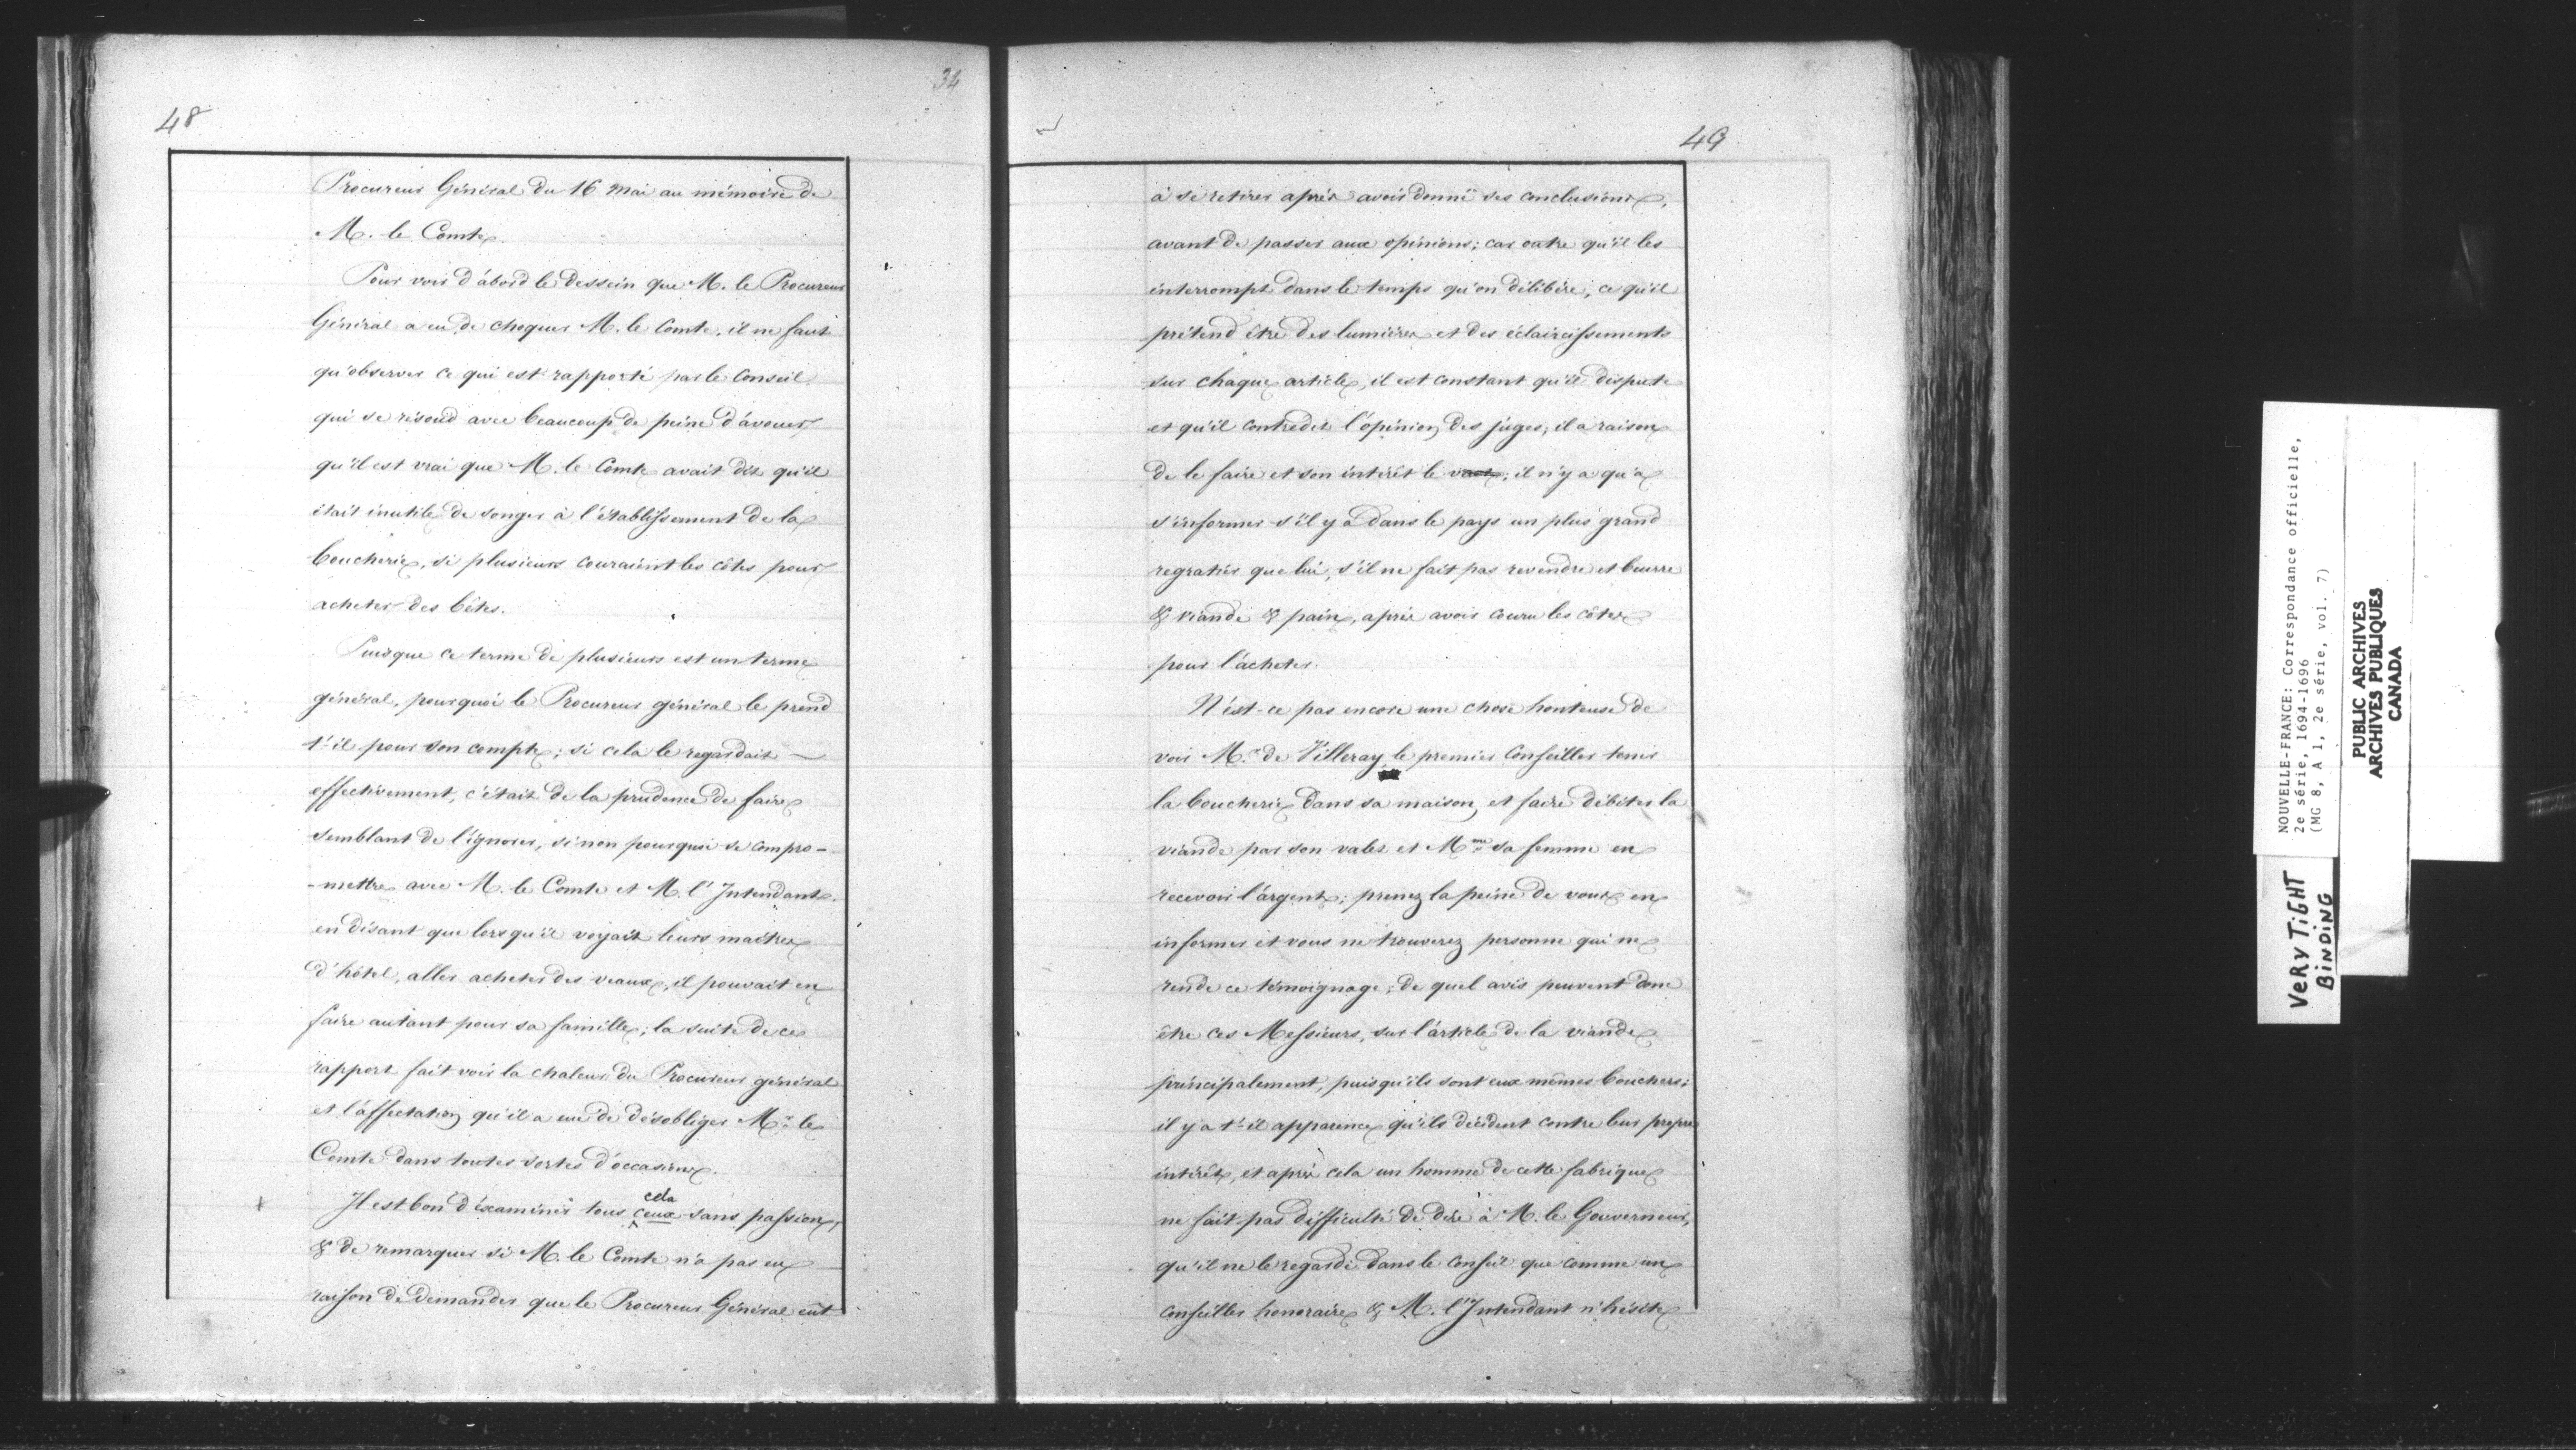 48
34
Procureur Général du 16 Mai au mémoire de
M. le Comte.
Pour voir d'abord le dessein que M. le Procureur
Général a eu de choquer M. le Comte, il ne faut
qu'observer ce qui est rapporté par le Conseil,
qui se résoud avec beaucoup de peine d'avouer
qu'il est vrai que M. le Comte avait dit qu'il
était inutile de songer à l'établissement de la
boucherie, si plusieurs couraient les côtes pour
acheter des bêtes.
Puisque ce terme de plusieurs est un terme
général, pourquoi le Procureur général le prend
t'-il pour son compte; si cela le regardait —
effectivement, c'était de la prudence de faire
semblant de l'ignorer, sinon pourquoi se compro-
-mettre avec M. le Comte et M. l'Intendant,
en disant que lorsqu'il voyait leurs maitres
d'hôtel, aller acheter des veaux, il pouvait en
faire autant pour sa famille; la suite de ce
rapport fait voir la chaleur du Procureur général
et l'affectation qu'il a eue de désobliger Mr. le
Comte dans toutes sortes d'occasions.
cela
Il est bon d'éxaminer tous ceux sans passion,
& de remarquer si M. le Comte n'a pas eu
raison de demander que le Procureur Général eût
49
à se retirer après avoir donné ses conclusions,
avant de passer aux opinions; car outre qu'il les
interrompt dans le temps qu'on délibère, ce qu'il
prétend être des lumières et des éclaircissements
sur chaque article, il est constant qu'il dispute
et qu'il contredit l'opinion des juges; il a raison
de le faire et son intérêt le ; il n'y a qu'à
s'informer s'il y a dans le pays un plus grand
regratier que lui, s'il ne fait pas revendre et beurre
& viande & pain, après avoir couru les côtes
pour l'acheter.
N'est-ce pas encore une chose honteuse de
voir M. de Villeray le premier Conseiller tenir
la boucherie dans sa maison, et faire débiter la
viande par son valet et Mme sa femme en
recevoir l'argent; prenez la peine de vous en
informer et vous ne trouverez personne qui ne
rende ce témoignage; de quel avis peuvent donc
être ces Messieurs, sur l'article de la viande
principalement, puisqu'ils sont eux mêmes bouchers;
il y a t'-il apparence qu'ils décident contre leur propre
intérêt, et après cela un homme de cette fabrique
ne fait pas difficulté de dire à M. le Gouverneur,
qu'il ne le regarde dans le conseil que comme un
conseiller honoraire & M. l'Intendant n'hésite
NOUVELLE-FRANCE: Correspondance officielle,
2e série, 1694-1696
(MG 8, A 1, 2e série, vol. 7)
PUBLIC ARCHIVES
ARCHIVES PUBLIQUES
CANADA
VERY TIGHT
BINDING